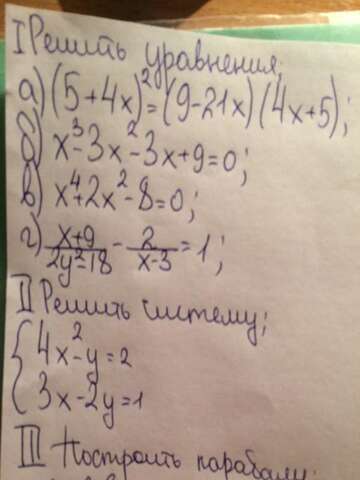 I Решить уравнения;
а) (5+4x)²=(9-21x)(4x+5);
б) x³-3x²-3x+9=0;
в) x⁴+2x²-8=0;
г) (x+9)/(2y²-18) - 2/(x-3) = 1;
II Решить систему;
{4x²-y=2
{3x-2y=1
III Построить параболу